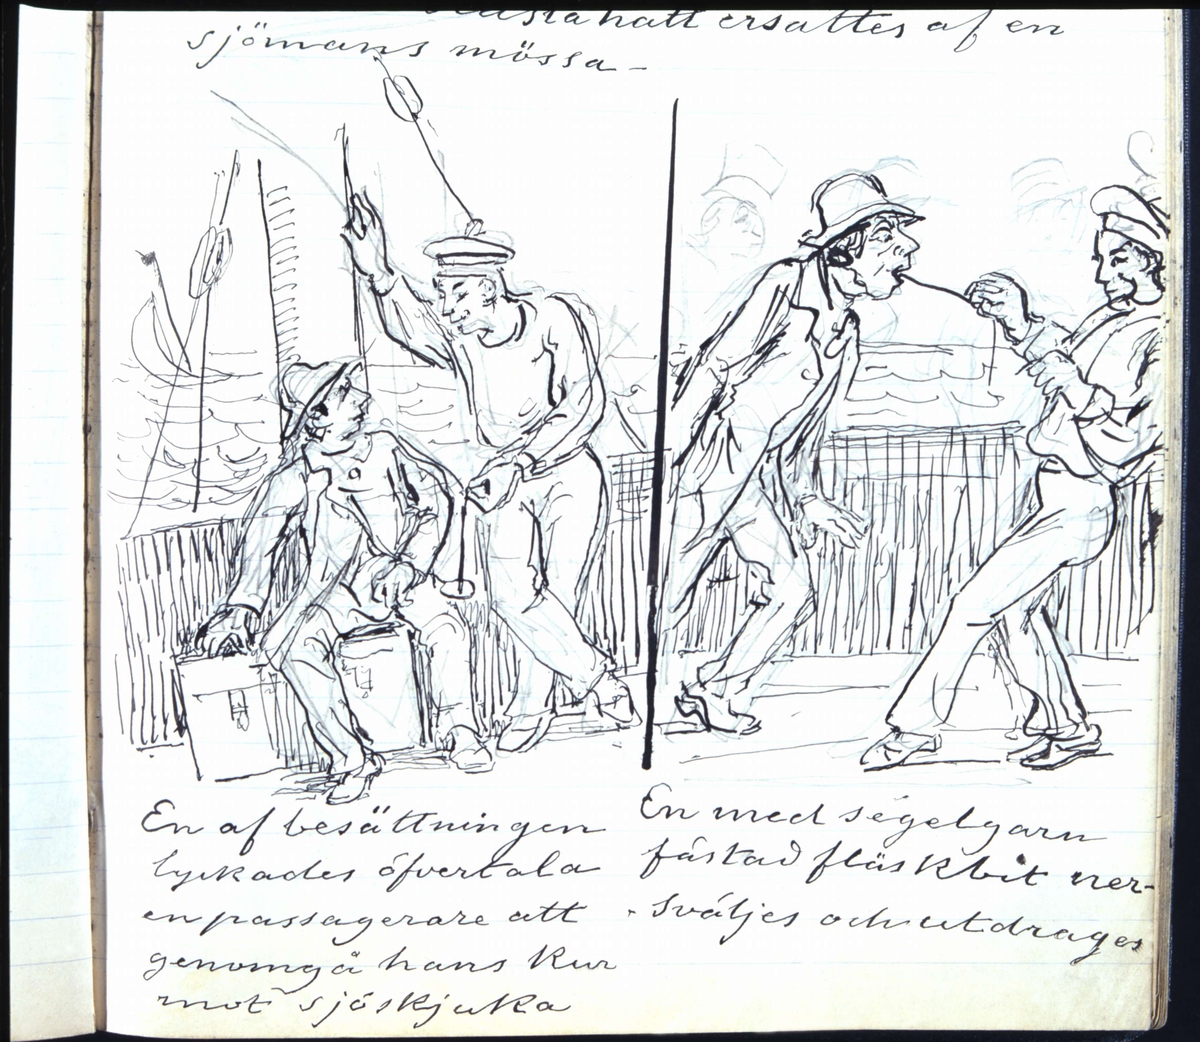 hatt ersattes af en
sjömans mössa -
En af besättningen
lyckades öfvertala
en passagerare att
genomgå hans kur
mot sjöskjuka
En med ségelgarn
fästad fläskbit ner-
sväljes och utdrages